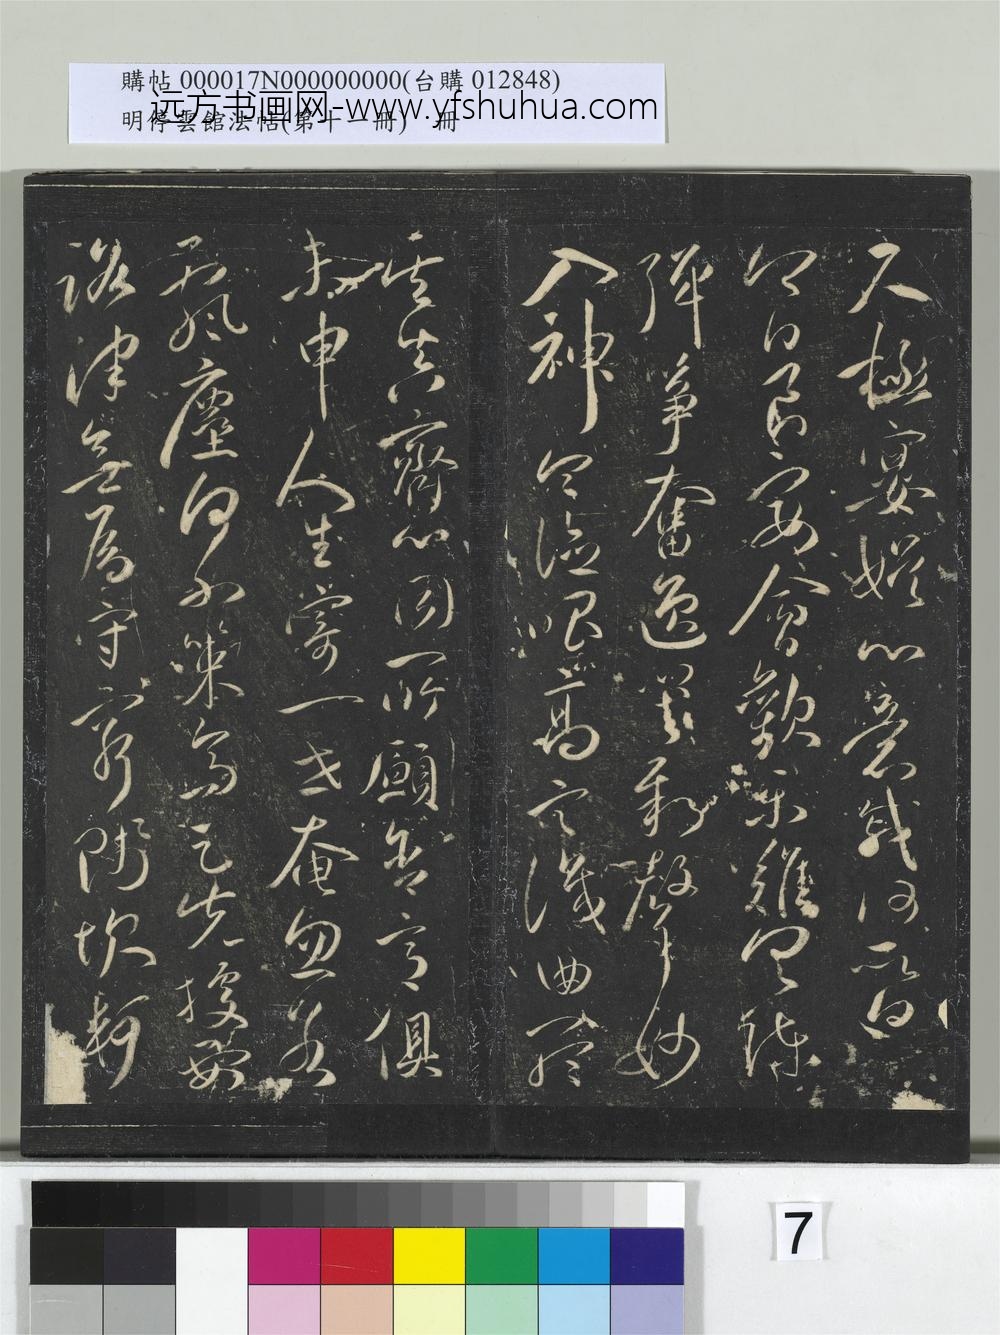 購帖 000017N000000000(台購 012848)
明停雲館法帖(第十一冊) 冊
远方书画网-www.yfshuhua.com
尺極宴娛心意戚戚何所迫
今日良宴會歡樂難具陳
彈箏奮逸響新聲妙
入神令德唱高言識曲聽
其真齊心同所願含意俱
未申人生寄一世奄忽若
飆塵何不策高足先據要
路津無為守窮賤坎軻
7